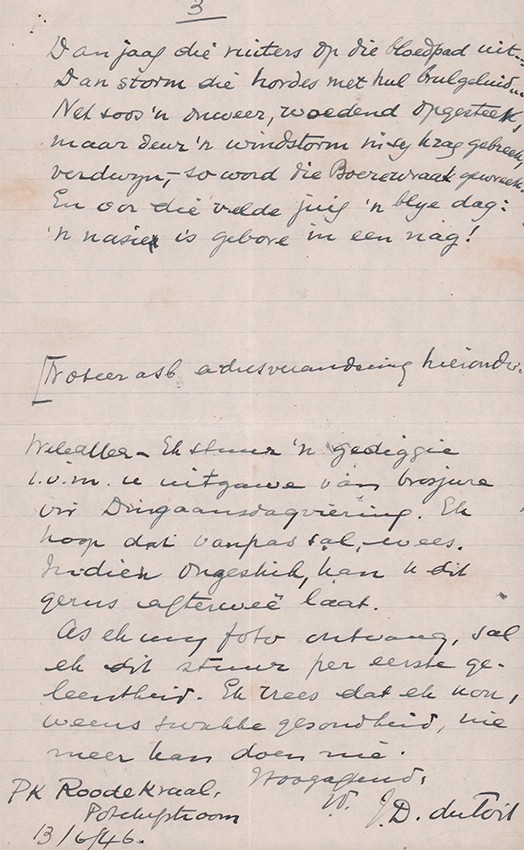 3
Dan jaag die ruiters op die bloedpad uit—
Dan storm die hordes met hul brulgeluid
Net soos 'n onweer, woedend opgesteek,
maar deur 'n windstorm in sy krag gebreek
verdwyn,— so word die Boerewraak gewreek.
En oor die velde juig 'n blye dag:
'n nasie is gebore in een nag!
[Noteer asb adresverandering hieronder.
WeledHer— Ek stuur 'n gediggie
i.v.m. u uitgawe van brosjure
vir Dingaansdagviering. Ek
hoop dat vanpas sal wees.
Indien ongeskik, kan u dit
gerus afterweë laat.
As ek my foto ontvang, sal
ek dit stuur per eerste ge-
leentheid. Ek vrees dat ek nou,
weens swakke gesondheid, nie
meer kan doen nie.
Hoogagtend,
PK Roodekraal,
J.D. du Toit
Potchefstroom
13/6/46.